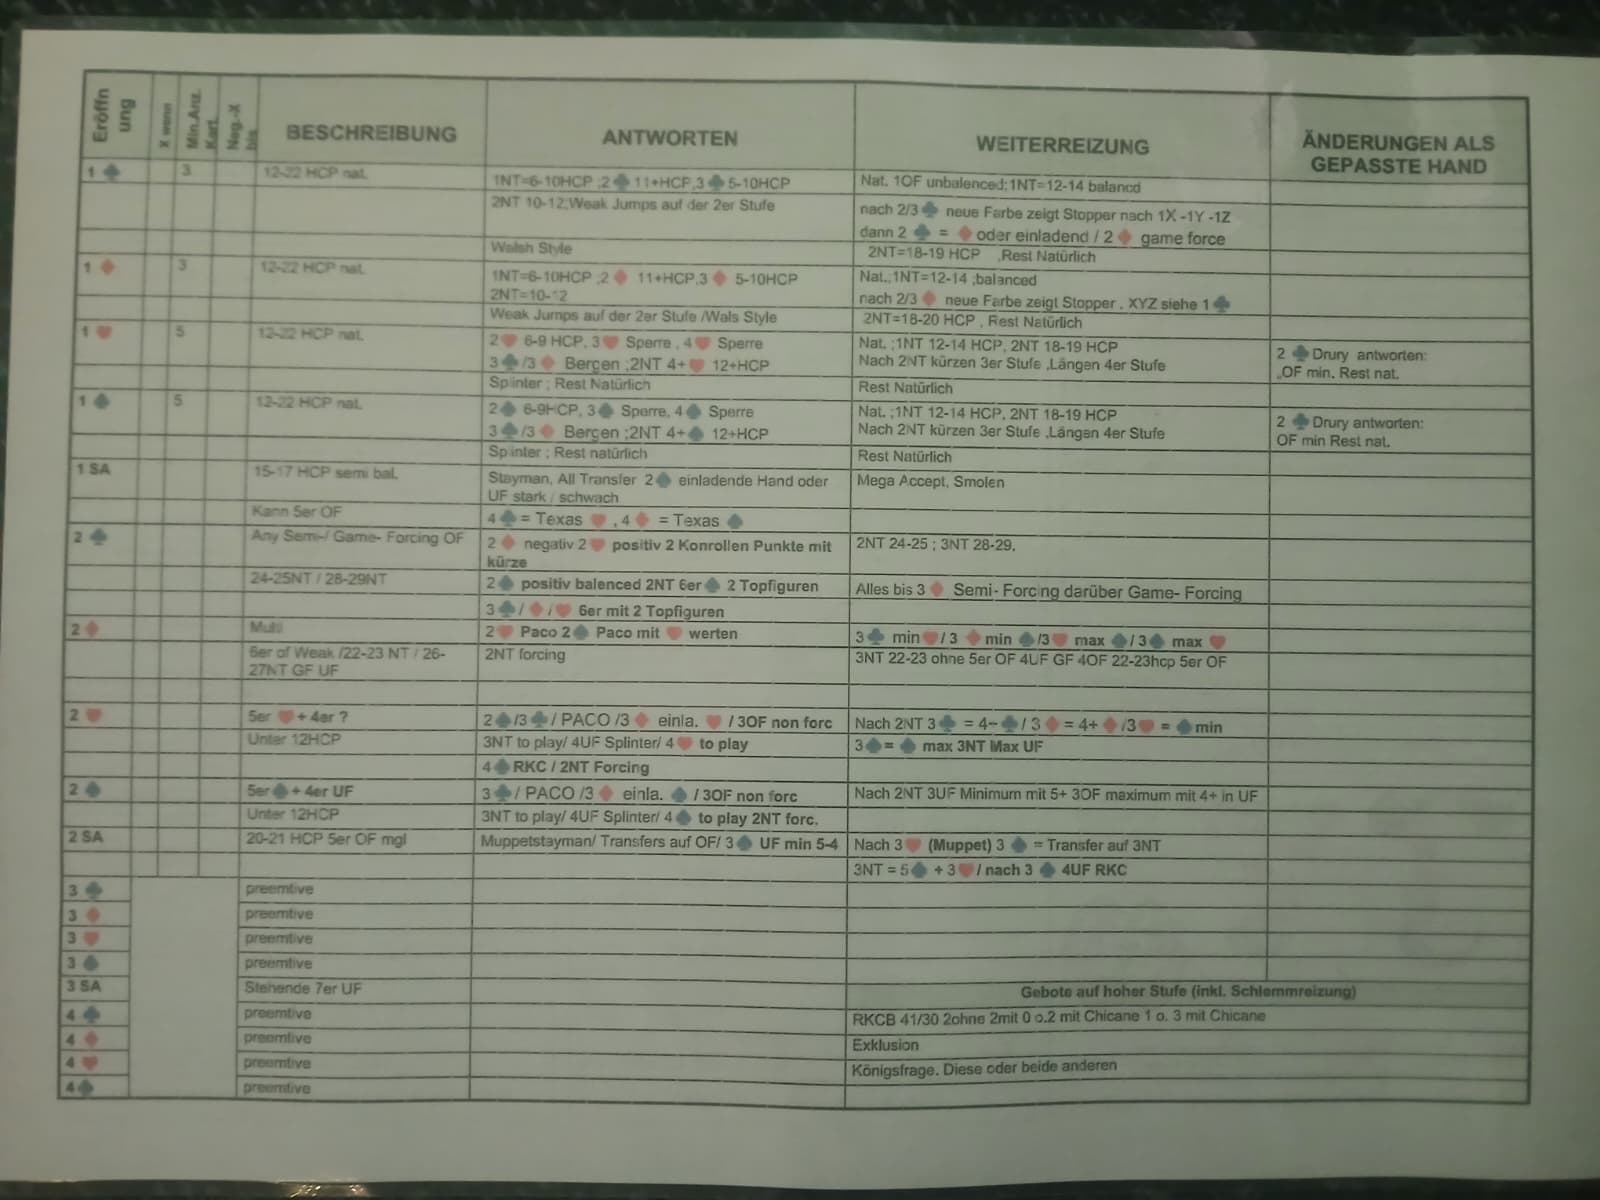 Eröffnung | X wenn | Min.Anz. Kart. | Neg.-X bis | BESCHREIBUNG | ANTWORTEN | WEITERREIZUNG | ÄNDERUNGEN ALS GEPASSTE HAND
1 ♣ | 3 | 12-22 HCP nat. | 1NT=6-10HCP ;2 ♣ 11+HCP,3 ♣ 5-10HCP | Nat. 1OF unbalenced; 1NT=12-14 balancd
2NT 10-12;Weak Jumps auf der 2er Stufe | nach 2/3 ♣ neue Farbe zeigt Stopper nach 1X -1Y -1Z
dann 2 ♣ = ♦ oder einladend / 2 ♦ game force
Walsh Style | 2NT=18-19 HCP ,Rest Natürlich
1 ♦ | 3 | 12-22 HCP nat. | 1NT=6-10HCP ;2 ♦ 11+HCP,3 ♦ 5-10HCP | Nat.;1NT=12-14 ;balanced
2NT=10-12 | nach 2/3 ♦ neue Farbe zeigt Stopper , XYZ siehe 1 ♣
Weak Jumps auf der 2er Stufe /Wals Style | 2NT=18-20 HCP , Rest Natürlich
1 ♥ | 5 | 12-22 HCP nat. | 2 ♥ 6-9 HCP, 3 ♥ Sperre , 4 ♥ Sperre | Nat. ;1NT 12-14 HCP, 2NT 18-19 HCP | 2 ♣ Drury antworten:
3 ♣ /3 ♦ Bergen ;2NT 4+ ♥ 12+HCP | Nach 2NT kürzen 3er Stufe ,Längen 4er Stufe | ,OF min. Rest nat.
Splinter ; Rest Natürlich | Rest Natürlich
1 ♠ | 5 | 12-22 HCP nat. | 2 ♠ 6-9HCP, 3 ♠ Sperre, 4 ♠ Sperre | Nat. ;1NT 12-14 HCP, 2NT 18-19 HCP | 2 ♣ Drury antworten:
3 ♣ /3 ♦ Bergen ;2NT 4+ ♠ 12+HCP | Nach 2NT kürzen 3er Stufe ,Längen 4er Stufe | OF min Rest nat.
Splinter ; Rest natürlich | Rest Natürlich
1 SA | 15-17 HCP semi bal. | Stayman, All Transfer 2 ♠ einladende Hand oder | Mega Accept, Smolen
UF stark / schwach
Kann 5er OF | 4 ♣ = Texas ♥ , 4 ♦ = Texas ♠
2 ♣ | Any Semi-/ Game- Forcing OF | 2 ♦ negativ 2 ♥ positiv 2 Konrollen Punkte mit | 2NT 24-25 ; 3NT 28-29.
kürze
24-25NT / 28-29NT | 2 ♠ positiv balenced 2NT 6er ♠ 2 Topfiguren | Alles bis 3 ♦ Semi- Forcing darüber Game- Forcing
3 ♣ / ♦ / ♥ 6er mit 2 Topfiguren
2 ♦ | Multi | 2 ♥ Paco 2 ♠ Paco mit ♥ werten | 3 ♣ min ♥ / 3 ♦ min ♠ /3 ♥ max ♠ / 3 ♠ max ♥
6er of Weak /22-23 NT / 26- | 2NT forcing | 3NT 22-23 ohne 5er OF 4UF GF 4OF 22-23hcp 5er OF
27NT GF UF
2 ♥ | 5er ♥ + 4er ? | 2 ♠ /3 ♣ / PACO /3 ♦ einla. ♥ / 3OF non forc | Nach 2NT 3 ♣ = 4+ ♣ / 3 ♦ = 4+ ♦ /3 ♥ = ♠ min
Unter 12HCP | 3NT to play/ 4UF Splinter/ 4 ♥ to play | 3 ♠ = ♠ max 3NT Max UF
4 ♠ RKC / 2NT Forcing
2 ♠ | 5er ♠ + 4er UF | 3 ♣ / PACO /3 ♦ einla. ♠ / 3OF non forc | Nach 2NT 3UF Minimum mit 5+ 3OF maximum mit 4+ in UF
Unter 12HCP | 3NT to play/ 4UF Splinter/ 4 ♠ to play 2NT forc.
2 SA | 20-21 HCP 5er OF mgl | Muppetstayman/ Transfers auf OF/ 3 ♠ UF min 5-4 | Nach 3 ♥ (Muppet) 3 ♠ = Transfer auf 3NT
3NT = 5 ♠ + 3 ♥ / nach 3 ♠ 4UF RKC
3 ♣ | preemtive
3 ♦ | preemtive
3 ♥ | preemtive
3 ♠ | preemtive
3 SA | Stehende 7er UF | Gebote auf hoher Stufe (inkl. Schlemmreizung)
4 ♣ | preemtive | RKCB 41/30 2ohne 2mit 0 o.2 mit Chicane 1 o. 3 mit Chicane
4 ♦ | preemtive | Exklusion
4 ♥ | preemtive | Königsfrage. Diese oder beide anderen
4 ♠ | preemtive